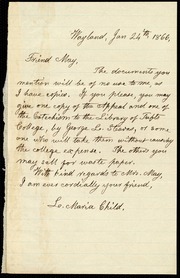 Wayland, Jan 24th, 1866.
Friend May,
The documents you
mention will be of no use to me as
I have copies. If you please, you may
give one copy of the Appeal and one of
the Catechism to the Library of Tufts
College, by George L. Stearns, or some
one who will take them without causing
the college expense. The others you
may sell for waste paper.
With kind regards to Mrs. May,
I am ever cordially your friend,
L. Maria Child.